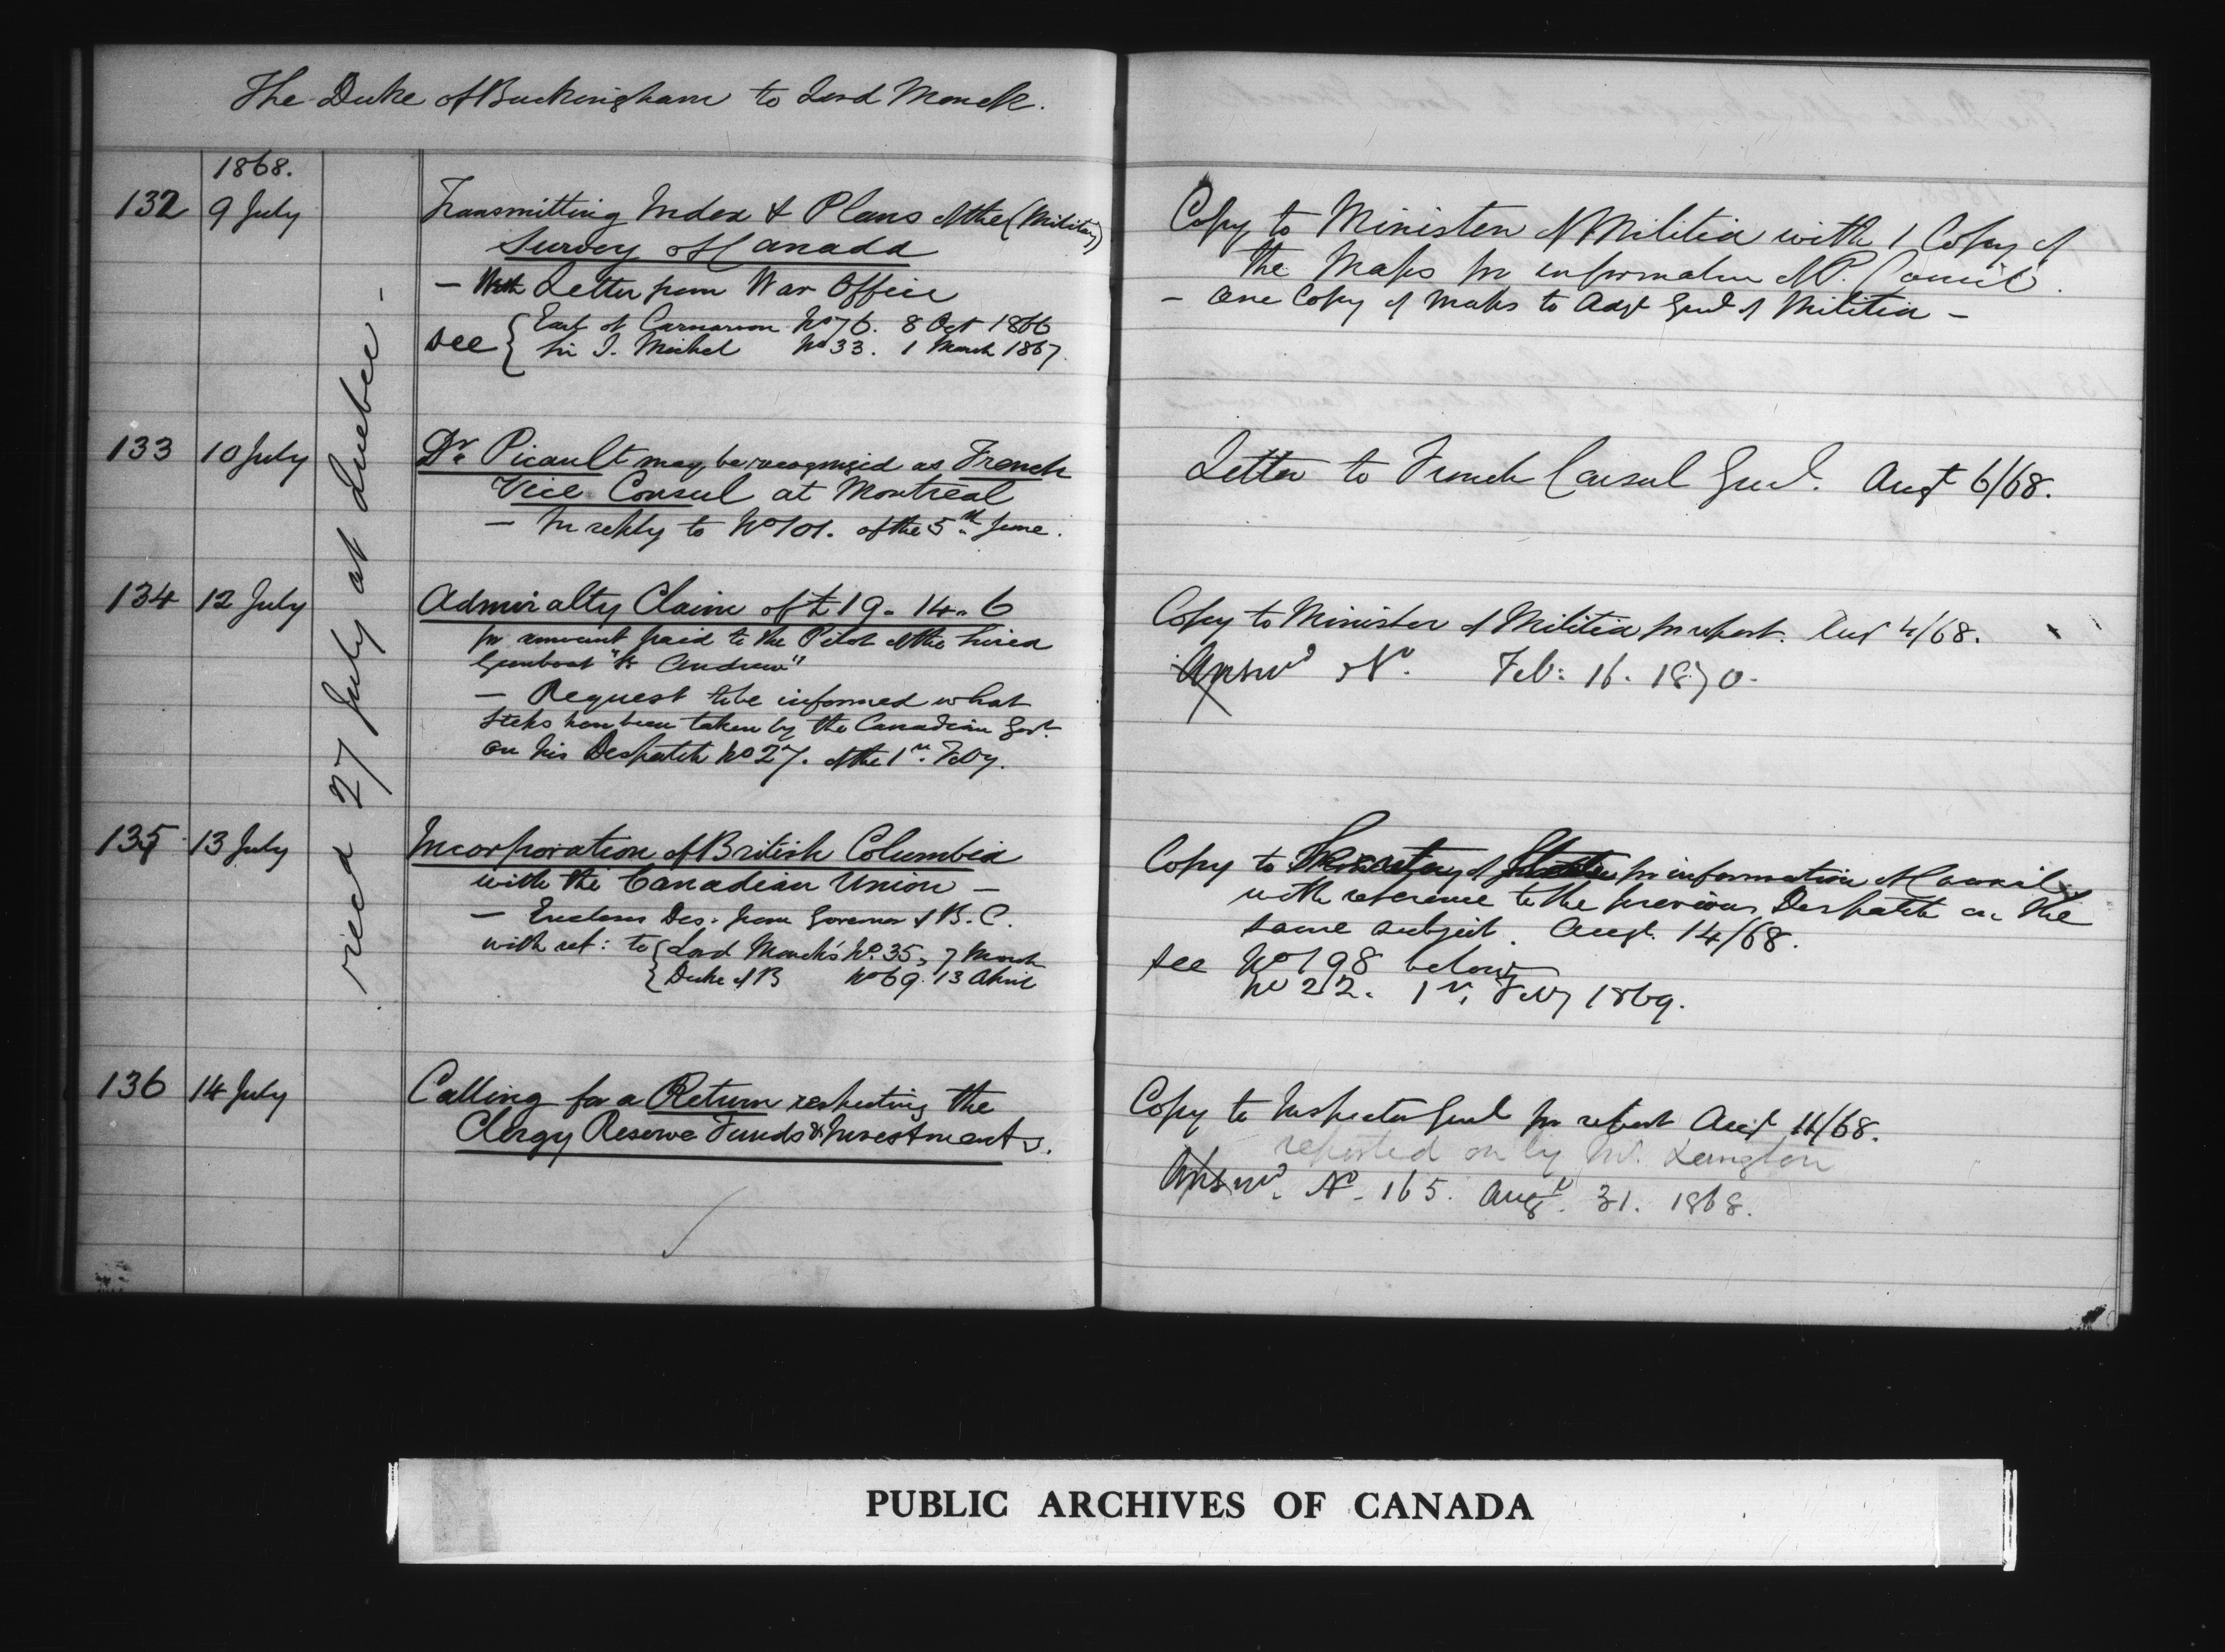 The Duke of Buckingham to Lord Monck.
1868.
132 9 July
Transmitting Index & Plans of the (Military)
Survey of Canada
- With Letter from War Office
see { Earl of Carnarvon No 76. 8 Oct 1866
Sir J. Michel No 33. 1 March 1867.
Copy to Minister of Militia with 1 Copy of
the Maps for information of P. Council.
- One Copy of Maps to Adjt Genl of Militia -
recd 27 July at Quebec -
133 10 July
Dr. Picault may be recognised as French
Vice Consul at Montreal
- In reply to No 101. of the 5th June.
Letter to French Consul Genl. Augt 6/68.
134 12 July
Admiralty Claim of £19.14.6
for amount paid to the Pilot of the hired
Gunboat "St Andrew"
- Request to be informed what
steps have been taken by the Canadian Govt.
on his Despatch No 27. of the 1st. Feby.
Copy to Minister of Militia for report. Aug 4/68.
Answd No. Feb: 16. 1870.
135 13 July
Incorporation of British Columbia
with the Canadian Union -
- Encloses Des. from Governor of B.C.
with ref: to { Lord Monck's No. 35, 7 March
{ Duke of B No 69. 13 April
Copy to Secretary of State for information of Council
with reference to the previous Despatch on the
same subject. Augt. 14/68.
see No 198 below
No 22. 1st. Feby 1869.
136 14 July
Calling for a Return respecting the
Clergy Reserve Funds & Investments.
Copy to Inspector Genl for report Augt 11/68.
reported on by Mr. Langton
Answd. No. 165. Augt. 31. 1868.
PUBLIC ARCHIVES OF CANADA